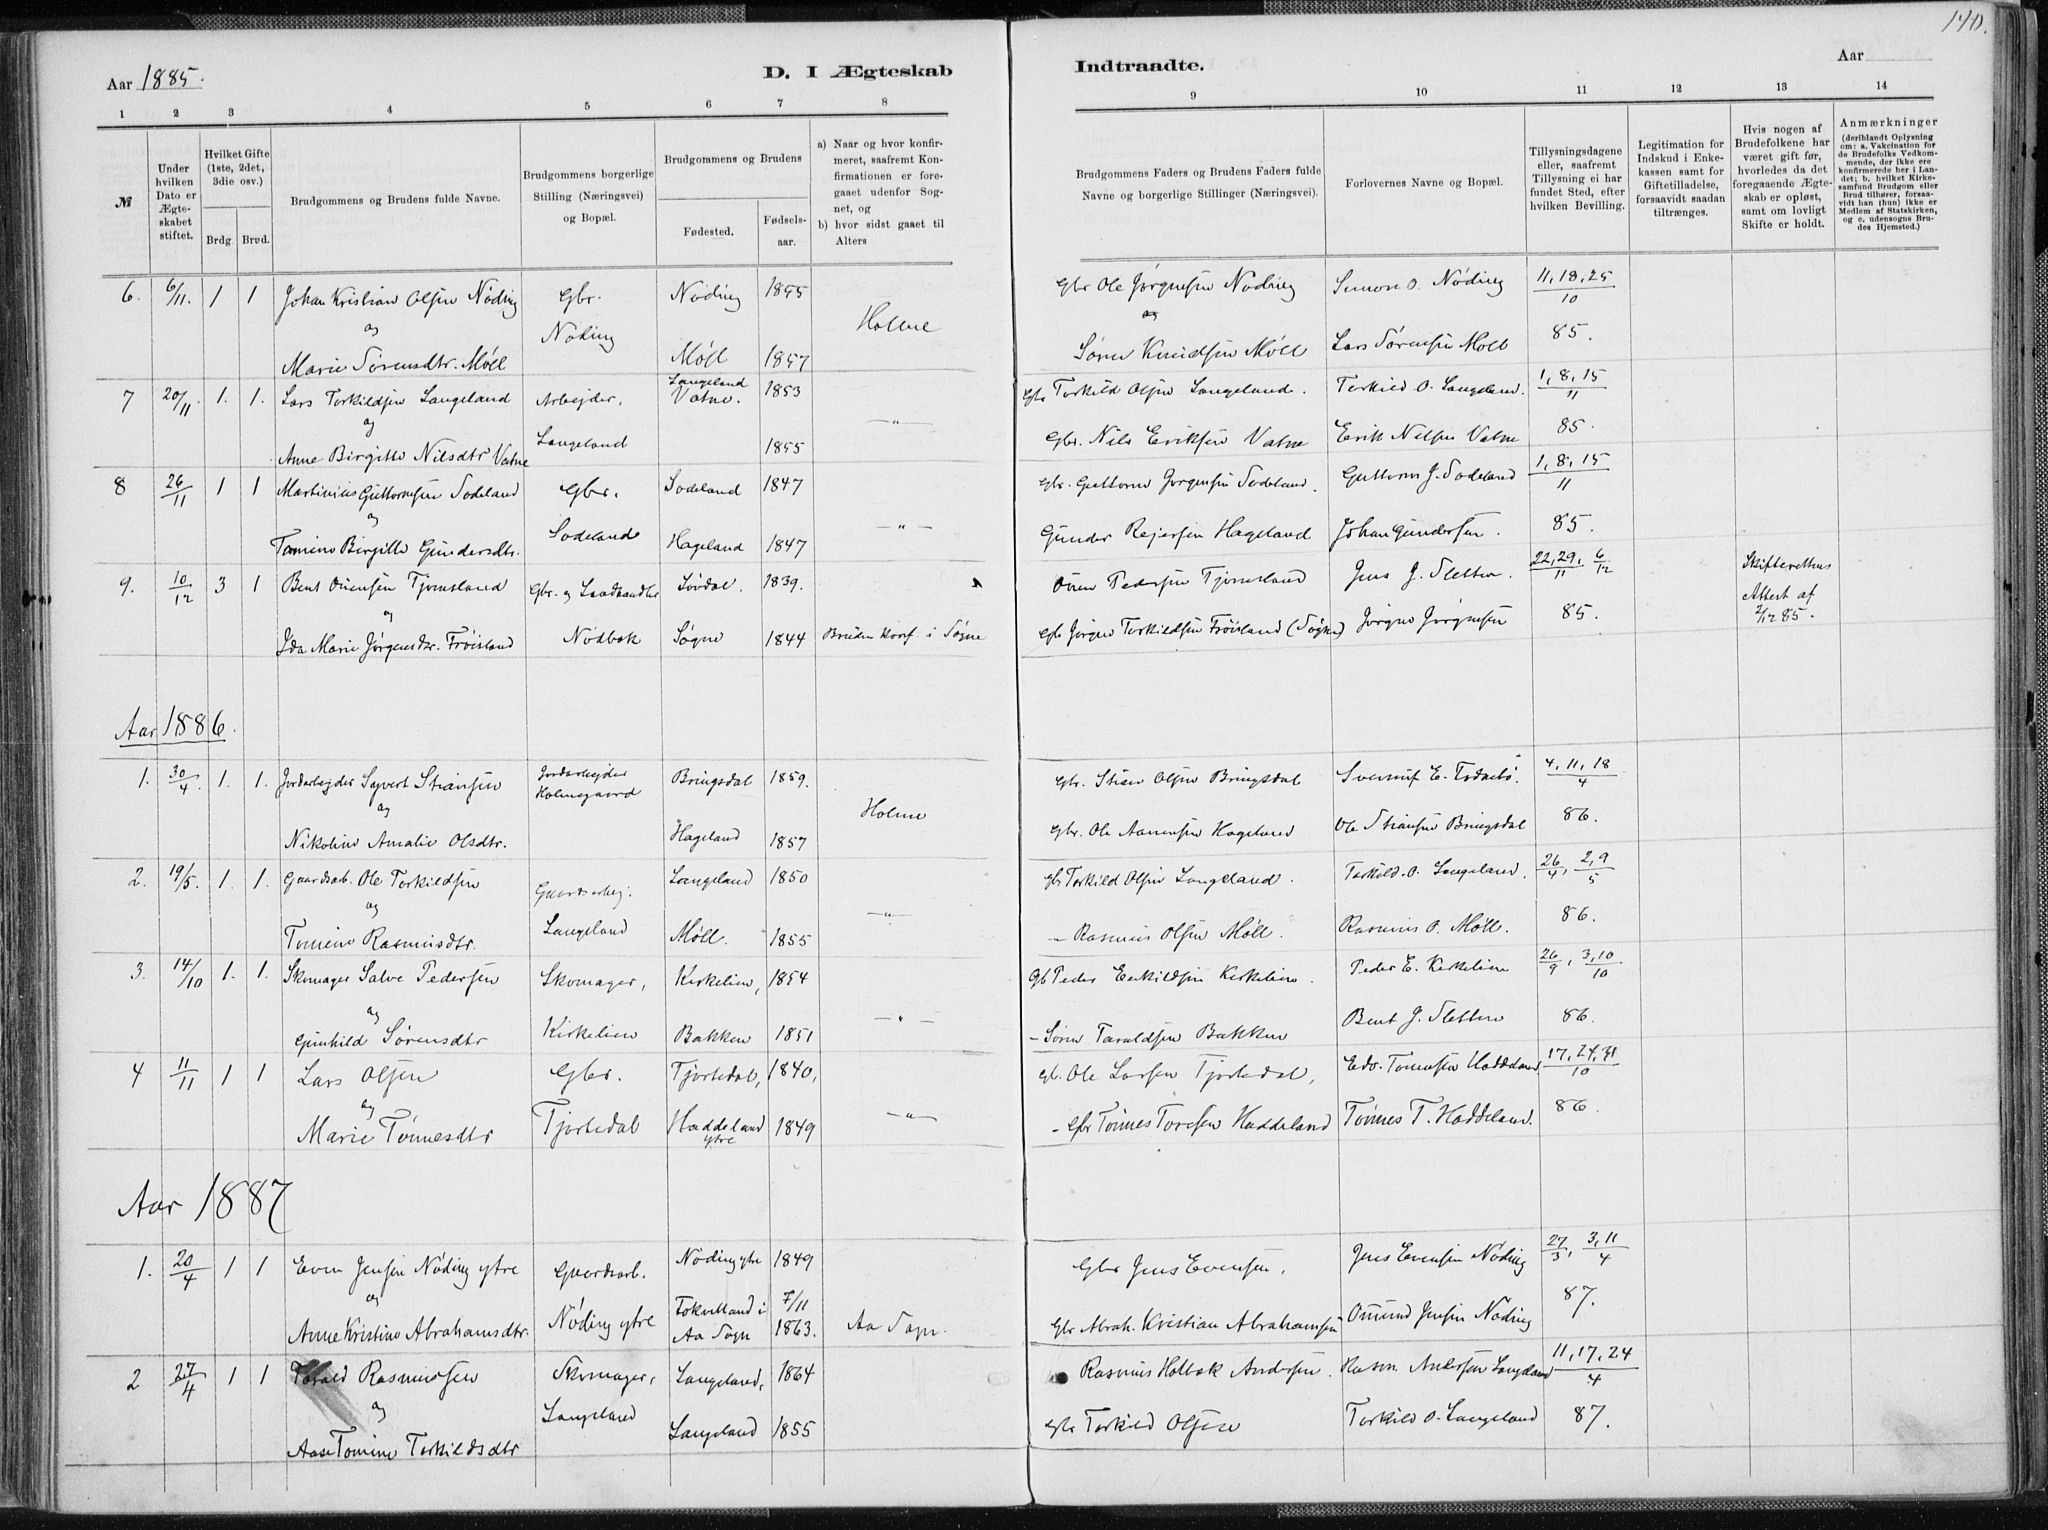 140.
Aar 1885.
D. I Ægteskab
Indtraadte.
Aar
1 2 3 4 5 6 7 8
9 10 11 12 13 14
№
Under hvilken Dato er Ægteskabet stiftet.
Hvilket Gifte (1ste, 2det, 3die osv.)
Brdg. Brud.
Brudgommens og Brudens fulde Navne.
Brudgommens borgerlige Stilling (Næringsvei) og Bopæl.
Brudgommens og Brudens
Fødested.
Fødselsaar.
a) Naar og hvor konfirmeret, saafremt Konfirmationen er foregaaet udenfor Sognet, og
b) hvor sidst gaaet til Alters
Brudgommens Faders og Brudens Faders fulde Navne og borgerlige Stillinger (Næringsvei).
Forlovernes Navne og Bopæl.
Tillysningsdagene eller, saafremt Tillysning ei har fundet Sted, efter hvilken Bevilling.
Legitimation for Indskud i Enkekassen samt for Giftetilladelse, forsaavidt saadan tiltrænges.
Hvis nogen af Brudefolkene har været gift før, hvorledes da det foregaaende Ægteskab er opløst, samt om lovligt Skifte er holdt.
Anmærkninger
(deriblandt Oplysning om: a. Vakcination for de Brudefolks Vedkommende, der ikke ere konfirmerede her i Landet; b. hvilket Kirkesamfund Brudgom eller Brud tilhører, forsaavidt han (hun) ikke er Medlem af Statskirken, og c. udensogns Brudes Hjemsted.)
6. 6/11. 1 1 Johan Kristian Olsen Nøding Gbr. Nøding 1855 Gbr Ole Jørgensen Nøding Simon O. Nøding 11, 18, 25/10
og Nøding Holme og
Marie Sørensdtr. Møll Møll 1857 Søren Knudsen Møll Lars Sørensen Møll 85.
7 20/11. 1. 1. Lars Torkildsen Langeland Arbejder, Langeland Vatne. 1853 Gbr Torkild Olsen Langeland. Torkild O. Langeland. 1, 8, 15/11
og Langeland — " —
Anne Birgitte Nilsdtr Vatne 1855 Gbr. Nils Eriksen Vatne Erik Nilsen Vatne 85.
8 26/11 1 1 Martinius Guttormsen Sodeland Gbr. Sodeland 1847 Gbr. Guttorm Jørgensen Sodeland. Guttorm J. Sodeland 1, 8, 15/11
og Sodeland — " —
Tomine Birgitte Gundersdtr. Hageland 1847 Gunder Rejersen Hageland Johan Gundersen. 85.
9. 10/12 3 1 Bent Ouensen Tjomsland Gbr. og Landhandler Løvdal. 1839. Ouen Pedersen Tjomsland Jens J. Sletten. 22, 29/11, 6/12 Skifterettens Attest af 2/12 85.
og
Ida Marie Jørgensdtr. Frøisland Nødbak Søgne 1844 Bruden konf. i Søgne Gbr Jørgen Torkildsen Frøisland (Søgne) Jørgen Jørgensen 85.
Aar 1886.
1. 30/4. 1. 1. Jordarbejder Syvert Stiansen Jordarbejder Holmegaard Bringsdal 1859. Gbr. Stian Olsen Bringsdal 4, 11, 18/4
og Holme
Nikoline Amalie Olsdtr. Hageland 1857 Gbr. Ole Aanensen Hageland Ole Stiansen Bringsdal 86.
2. 19/5. 1. 1. Gaardsarb. Ole Torkildsen Gaardsarbej. Langeland 1850 Gbr Torkild Olsen Langeland. Torkild. O. Langeland. 26/4, 2, 9/5
og Langeland — " —
Tomine Rasmusdtr. Møll. 1855 — Rasmus Olsen Møll. Rasmus O. Møll. 86.
3. 14/10 1. 1. Skomager Salve Pedersen Skomager, Kirkelien, 1854 Gb Peder Enkildsen Kirkelien. Peder E. Kirkelien 26/9, 3, 10/10
og — " —
Gunhild Sørensdtr Kirkelien Bakken 1851 — Søren Taraldsen Bakken Bent J. Sletten 86.
4 11/11 1 1 Lars Olsen Gbr. Tjortedal, 1840, Gb. Ole Larsen Tjortedal, Edv. Tomesen Haddeland 17, 24, 31/10
og — " —
Marie Tønnesdtr Tjortedal Haddeland ytre 1849 — Gbr Tønnes Toresen Haddeland Tønnes T. Haddeland. 86.
Aar 1887
1. 20/4 1 1 Even Jensen Nøding ytre Gaardsarb. Nøding ytre 1849 Gbr Jens Evensen. Jens Evensen Nøding 27/3, 3, 11/4
og 7/11
Anne Kristine Abrahamsdtr. Nøding ytre Fokselland i Aa Sogn 1863. Aa Sogn. Gbr Abrah. Kristian Abrahamsen Omund Jensen Nøding 87.
2 27/4 1 1 Tarald Rasmussen Skomager, Langeland, 1864 Rasmus Holbæk Andersen. Rasm. Andersen Langeland 11, 17, 24/4
og Langeland
Aase Tomine Torkildsdtr Langeland 1855 Gbr Torkild Olsen Torkild O. Langeland 87.